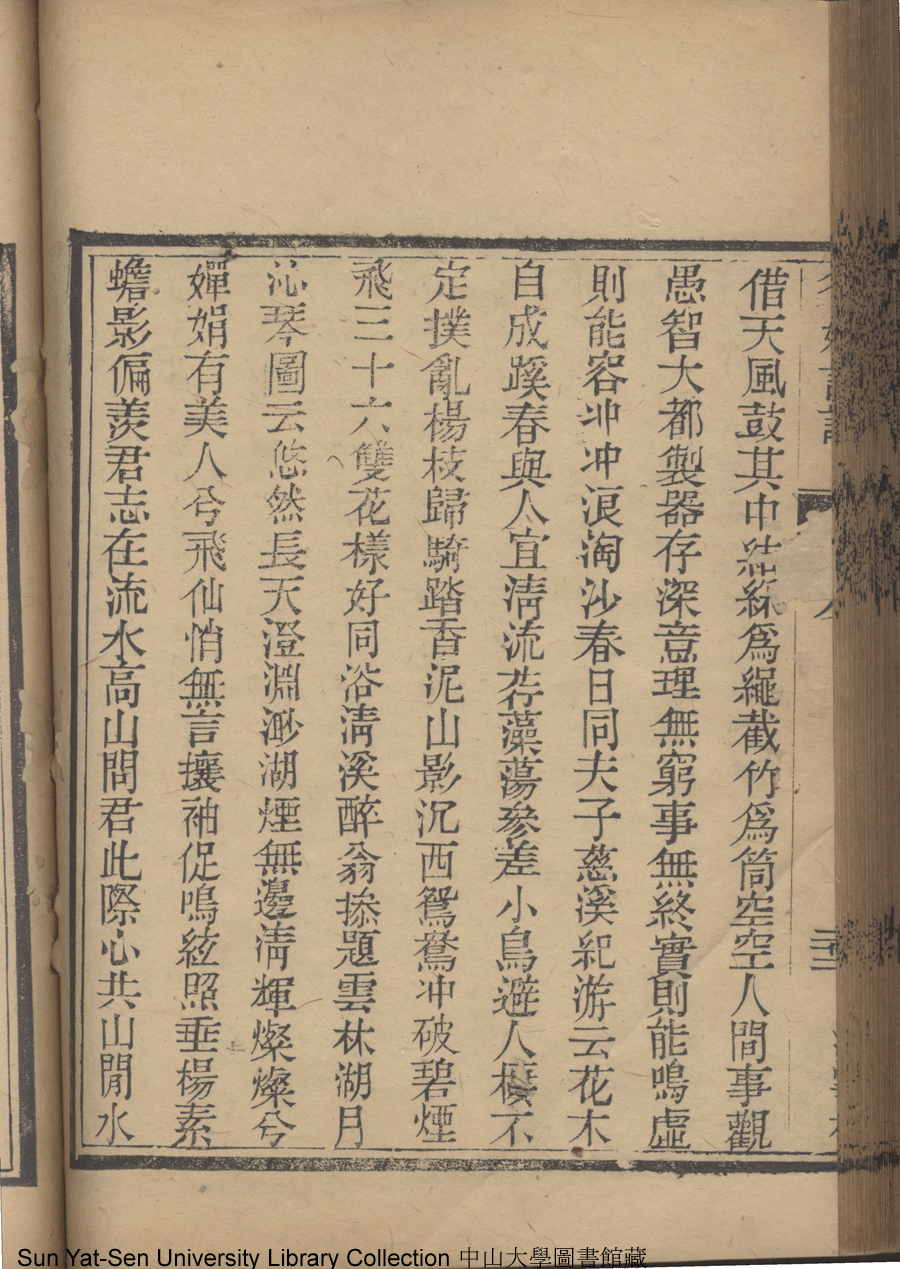 借天風鼓其中結綵爲繩截竹爲筒空空人間事觀
愚智大都製器存深意理無窮事無終實則能鳴虛
則能容冲冲浪淘沙春日同夫子慈溪紀游云花木
自成蹊春與人宜淸流荇藻蕩參差小鳥避人棲不
定撲亂楊枝歸騎踏香泥山影沉西鴛鴦冲破碧煙
飛三十六雙花樣好同浴淸溪醉翁操題雲林湖月
沁琴圖云悠然長天澄淵渺湖煙無邊淸輝燦燦兮
嬋娟有美人兮飛仙悄無言攘袖促鳴絃照垂楊素
蟾影偏羨君志在流水高山問君此際心共山閒水
Sun Yat-Sen University Library Collection 中山大學圖書館藏